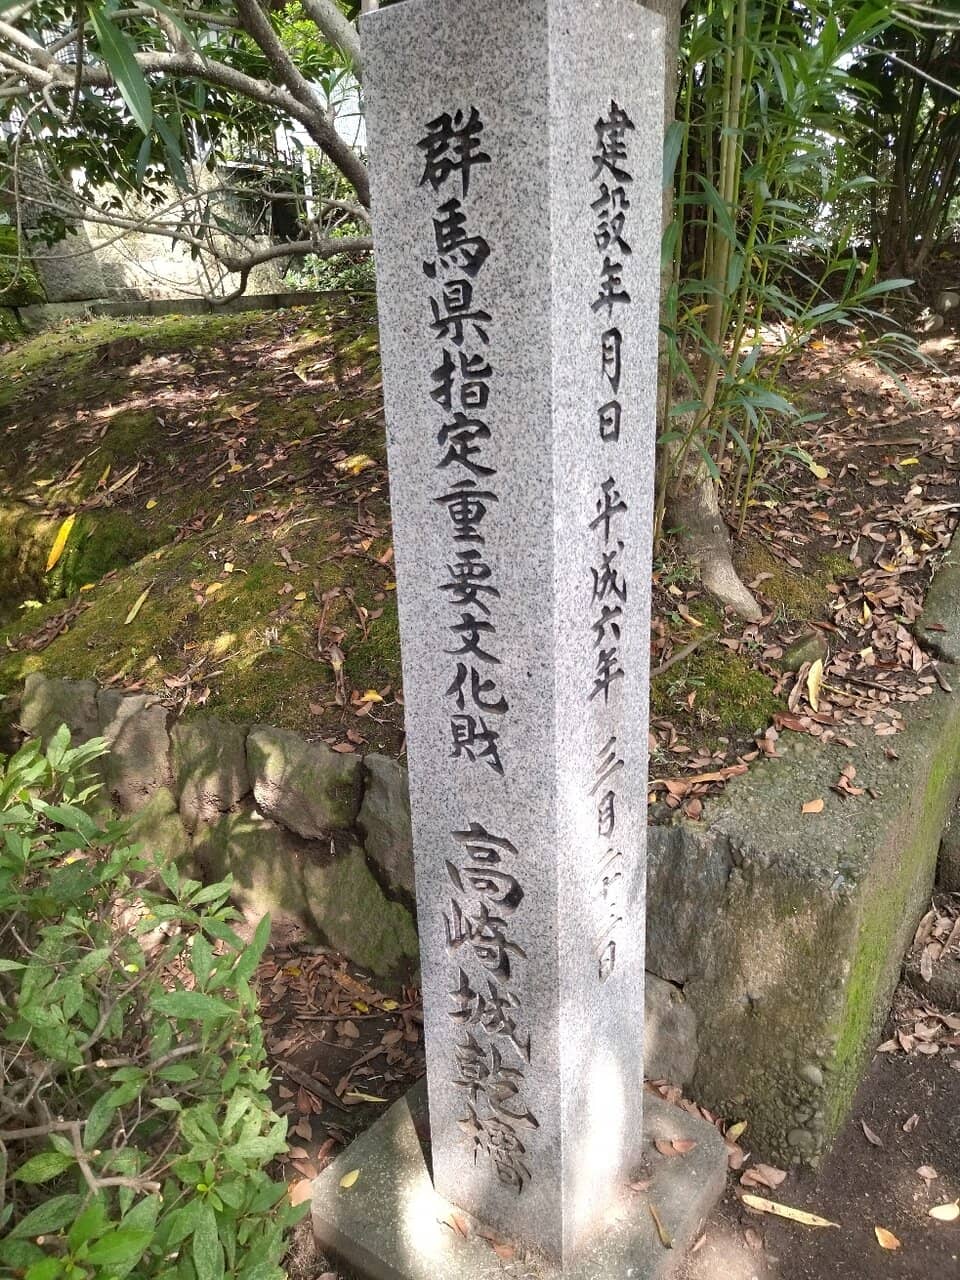 群馬県指定重要文化財 高崎城乾櫓
建設年月日 平成六年 三月二十二日